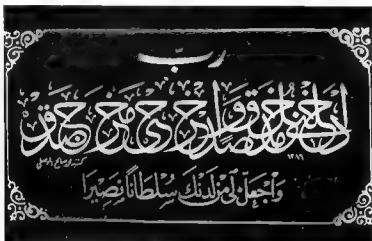 رب
أدخلني مدخل صدق وأخرجني مخرج صدق
١٣٨٦
واجعل لي من لدنك سلطانا نصيرا